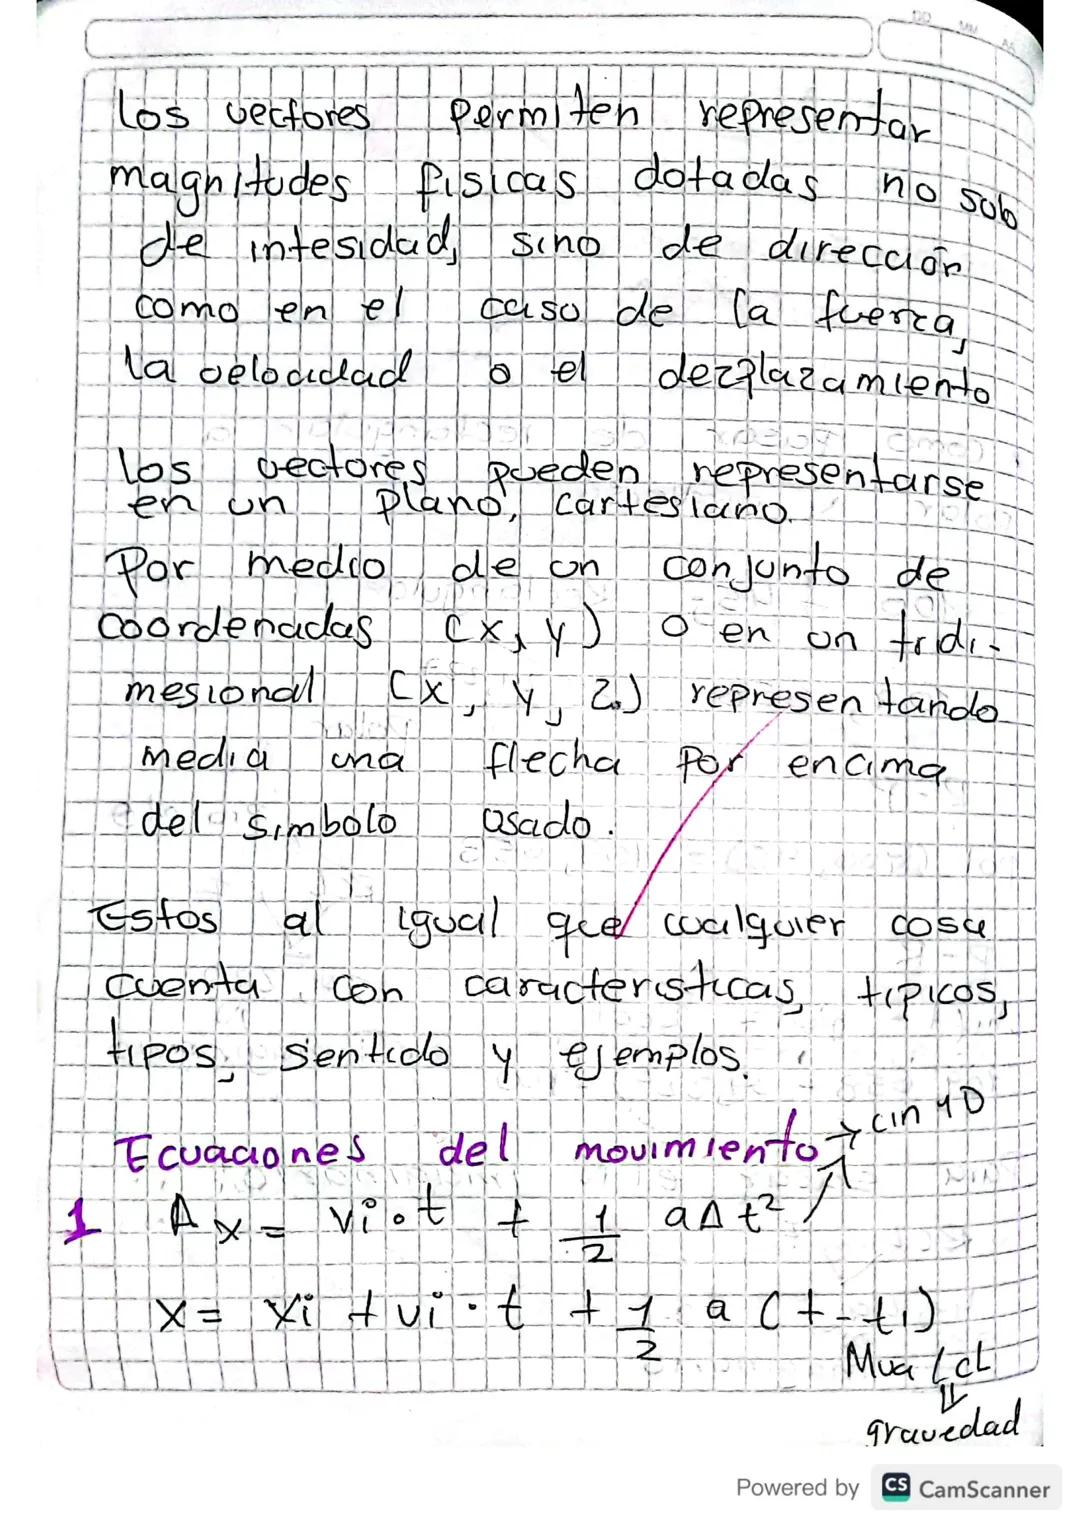 DD MM AA
los vectores permiten representar
magnitudes fisicas dotadas no solo
de intesidad, sino de dirección
como en el caso de la fuerza,
la velocidad o el dezplazamiento
los vectores pueden representarse
en un plano, cartesiano.
Por medio de un conjunto de
coordenadas (x, y) o en un tridi-
mesional (x, y, z.) representando
media una flecha por encima
del simbolo usado.
Estos al igual que cualquier cosa
cuenta con caracteristicas, tipicos,
tipos, sentido y ejemplos.
Ecuaciones del movimiento → cin 1D
1 Δx = vi·t + 1/2 aΔt²
x = xi + vi·t + 1/2 a (t-t1)
Mua / cL
⇓
gravedad
Powered by CS CamScanner